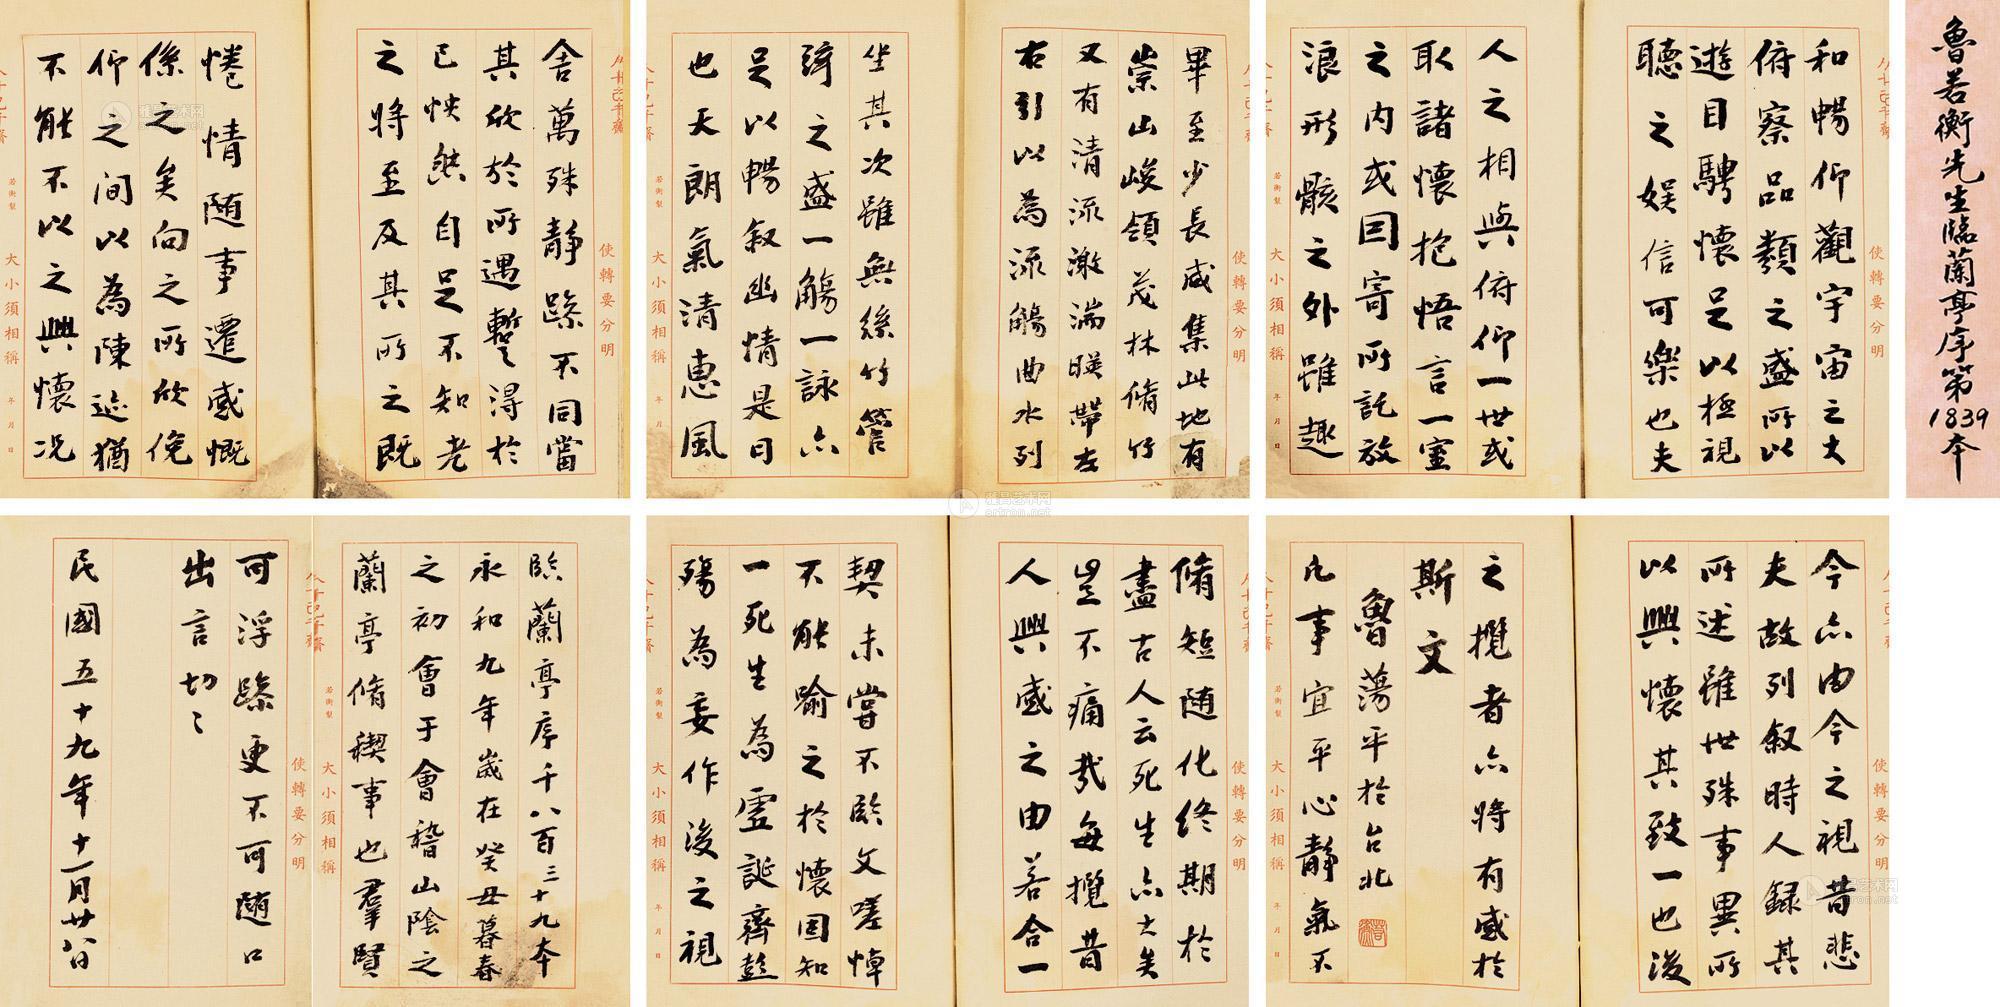 魯若衡先生臨蘭亭序第1839本
使轉要分明
和暢仰觀宇宙之大
俯察品類之盛所以
遊目騁懷足以極視
聽之娛信可樂也夫
人之相與俯仰一世或
取諸懷抱悟言一室
之內或因寄所託放
浪形骸之外雖趣
若衡製 大小須相稱 年月日
使轉要分明
畢至少長咸集此地有
崇山峻領茂林脩竹
又有清流激湍暎帶左
右引以為流觴曲水列
坐其次雖無絲竹管
絃之盛一觴一詠亦
足以暢敘幽情是日
也天朗氣清惠風
若衡製 大小須相稱 年月
使轉要分明
舍萬殊靜躁不同當
其欣於所遇暫得於
己怏然自足不知老
之將至及其所之既
惓情隨事遷感慨
係之矣向之所欣俛
仰之間以為陳迹猶
不能不以之興懷況
若衡製 大小須相稱 年月日
使轉要分明
今亦由今之視昔悲
夫故列敘時人錄其
所述雖世殊事異所
以興懷其致一也後
之攬者亦將有感於
斯文
魯蕩平於台北
凡事宜平心靜氣不
若衡製 大小須相稱 年月日
使轉要分明
脩短隨化終期於
盡古人云死生亦大矣
豈不痛哉每攬昔
人興感之由若合一
契未嘗不臨文嗟悼
不能喻之於懷固知
一死生為虛誕齊彭
殤為妄作後之視
若衡製 大小須相稱 年月日
臨蘭亭序千八百三十九本
永和九年歲在癸丑暮春
之初會于會稽山陰之
蘭亭脩禊事也羣賢
若衡製 大小須相稱
使轉要分明
可浮躁更不可隨口
出言切々
民國五十九年十一月廿八日
雅昌艺术网
artron.net